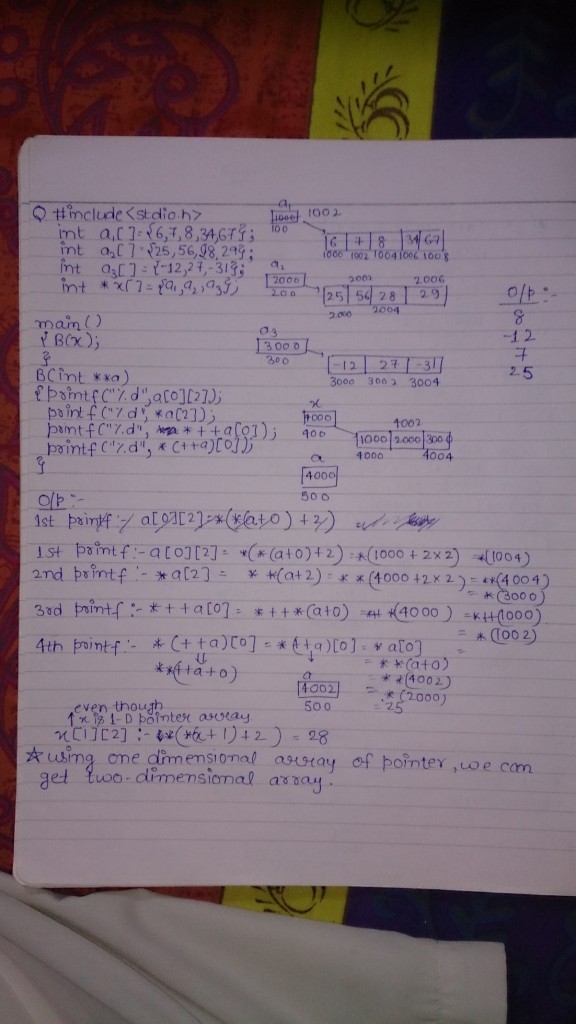 Q #include<stdio.h>
int a1[]={6,7,8,34,67};
int a2[]={25,56,28,29};
int a3[]={-12,27,-31};
int *x[]={a1,a2,a3};
main()
{ B(x);
}
B(int **a)
{ printf("%d",a[0][2]);
printf("%d",*a[2]);
printf("%d", *++a[0]);
printf("%d", *(++a)[0]);
}
a1
1000 1002
100
6 7 8 34 67
1000 1002 1004 1006 1008
a2
2000
200
2002 2006
25 56 28 29
2000 2004
a3
3000
300
-12 27 -31
3000 3002 3004
x
4000
400
4002
1000 2000 3000
4000 4004
a
4000
500
O/p :-
8
-12
7
25
O/p :-
1st printf :- a[0][2]=*(*(a+0)+2)
1st printf :- a[0][2] = *(*(a+0)+2) = *(1000+2x2) = *(1004)
2nd printf :- *a[2] = **(a+2) = **(4000+2x2) = **(4004)
= *(3000)
3rd printf :- *++a[0] = *++*(a+0) = *++*(4000) = *++(1000)
= *(1002)
4th printf :- *(++a)[0] = *(++a)[0] = *a[0] =
⇓ ↓ = **(a+0)
**(++a+0) a = **(4002)
4002 = *(2000)
500 = 25
even though
↑ x is 1-D pointer array
x[1][2] :- *(*(x+1)+2) = 28
☆ using one dimensional array of pointer, we can
get two-dimensional array.